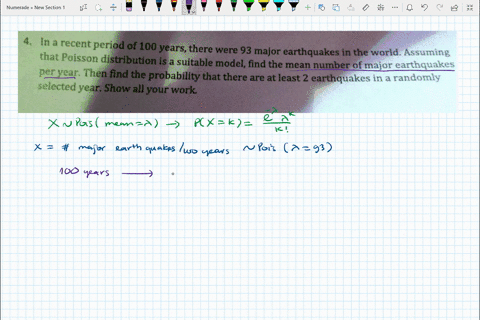 Numerade » New Section 1
4. In a recent period of 100 years, there were 93 major earthquakes in the world. Assuming
that Poisson distribution is a suitable model, find the mean number of major earthquakes
per year. Then find the probability that there are at least 2 earthquakes in a randomly
selected year. Show all your work.
X ~ Pois(mean=λ) → P(X=k) = e^-λ λ^k / k!
X = # major earthquakes/100 years ~ Pois (λ=93)
100 years →